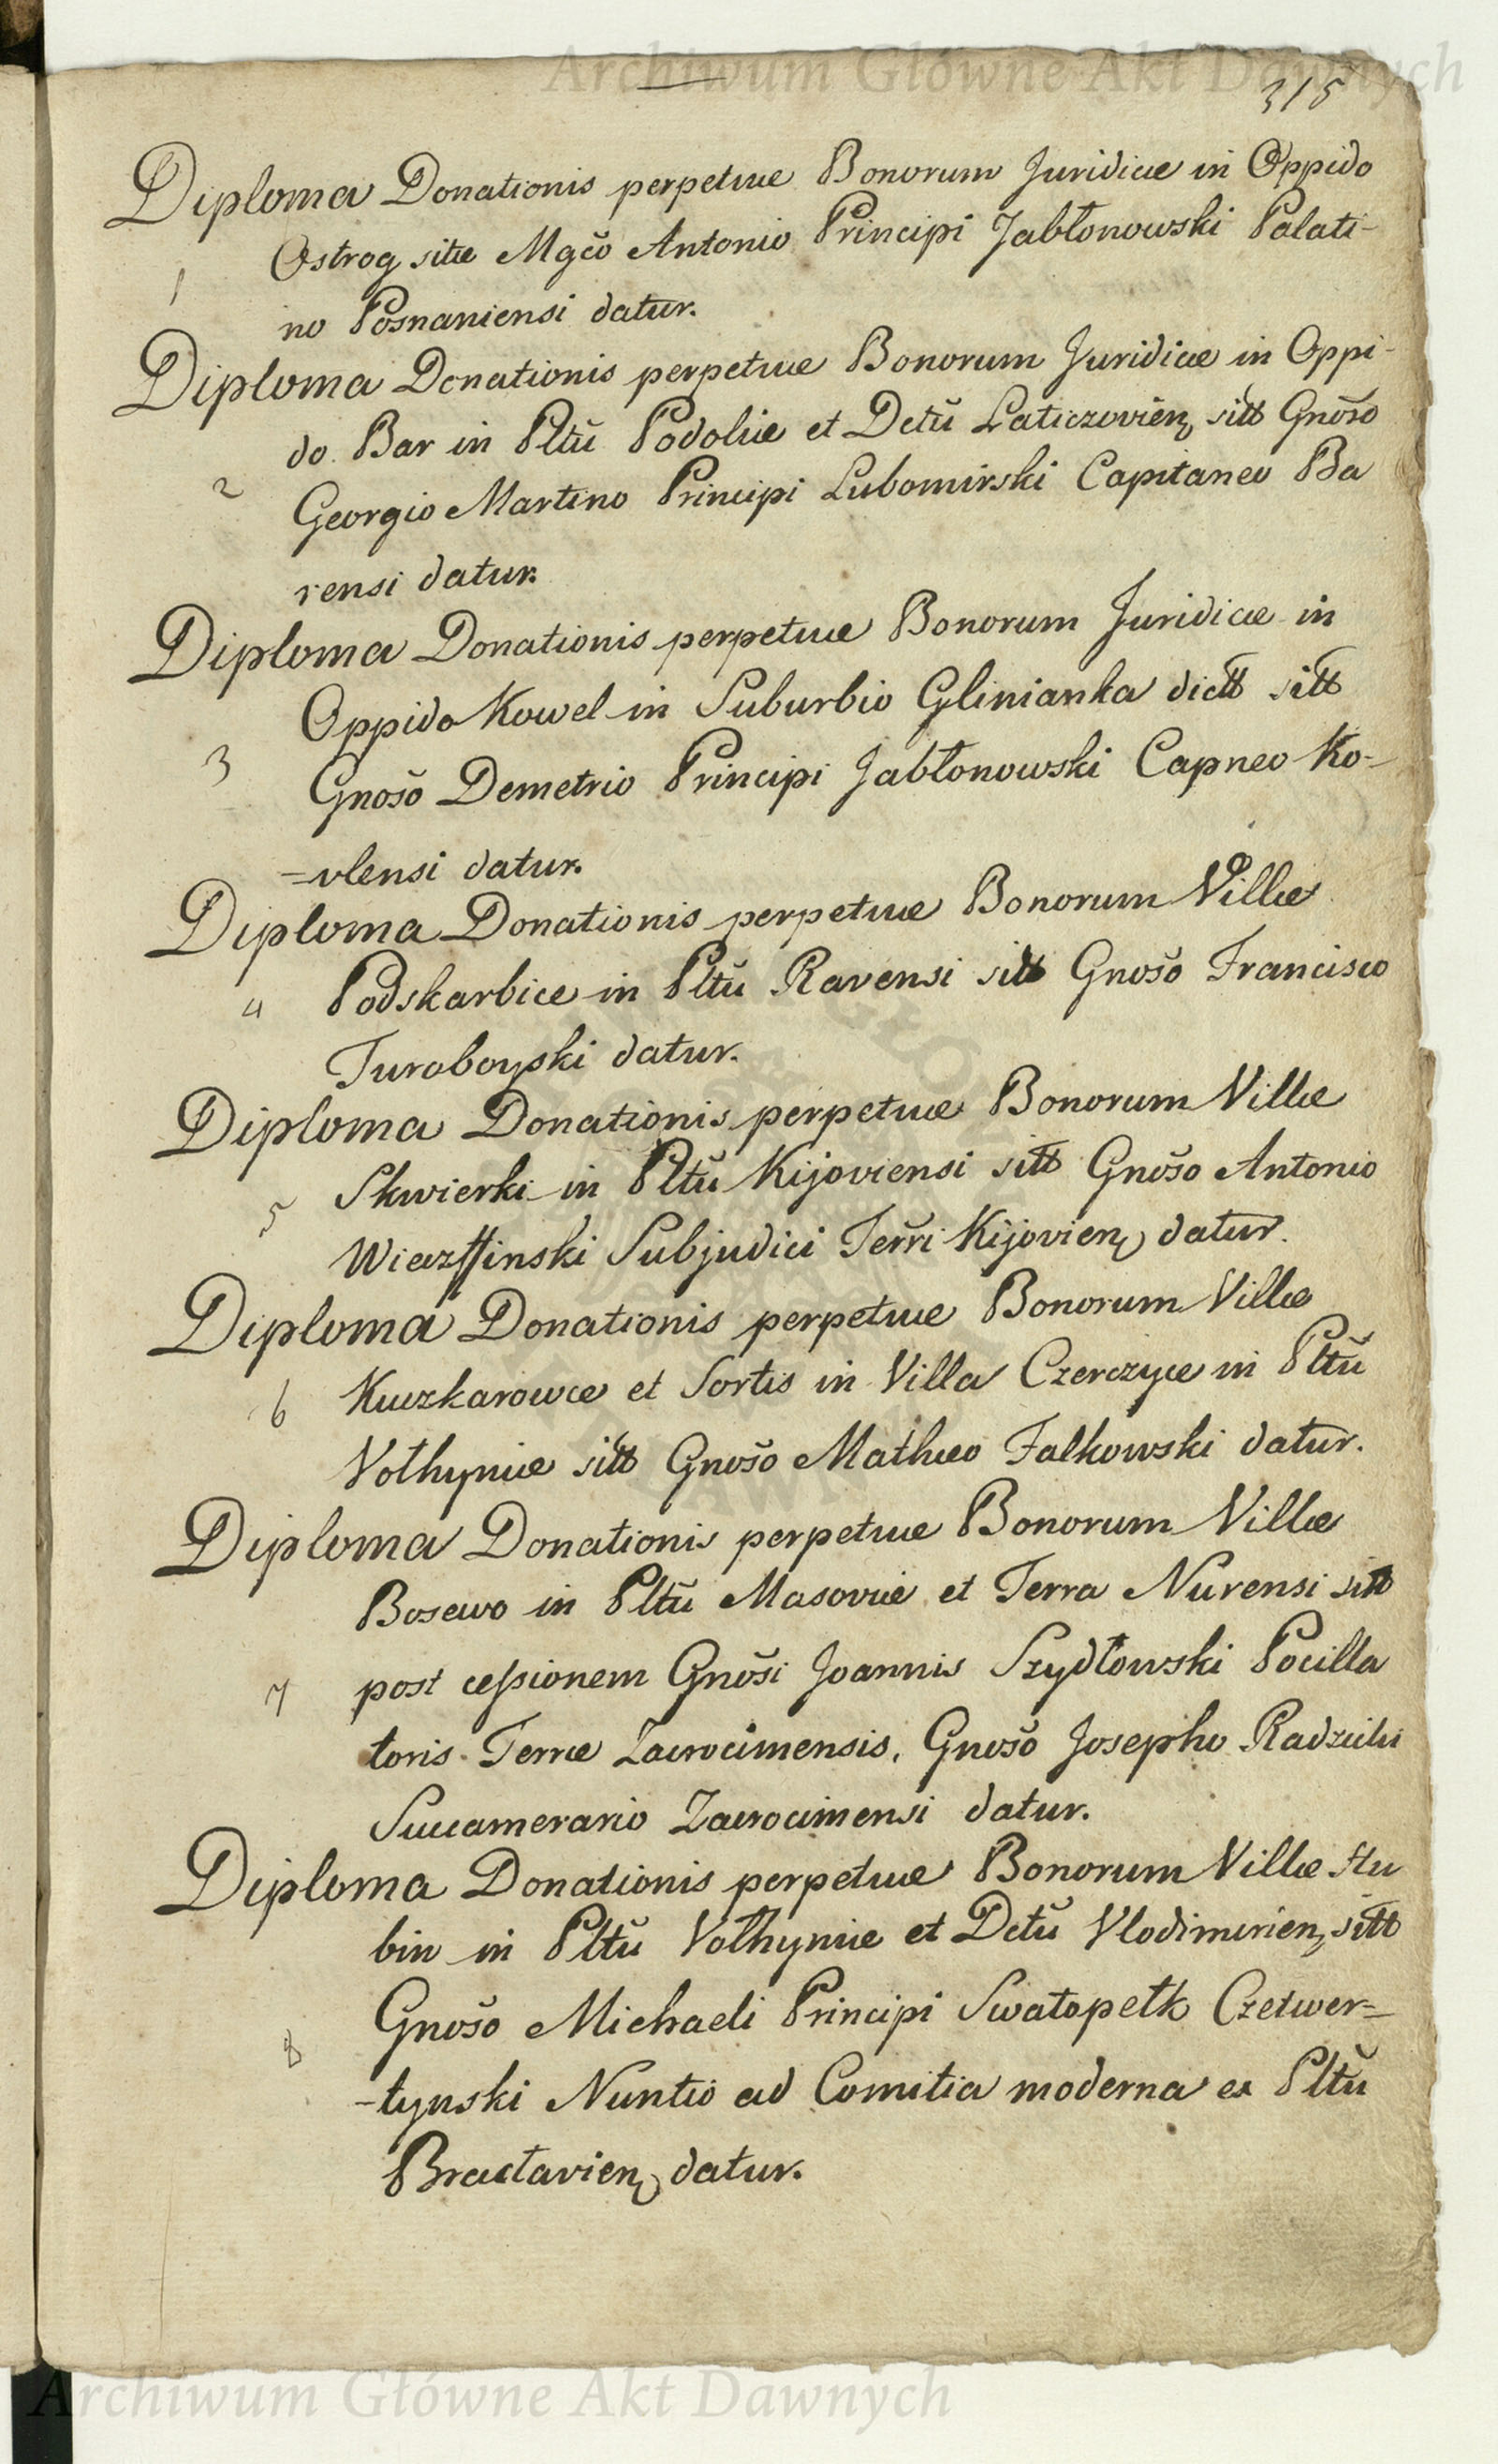 Archiwum Główne Akt Dawnych
315
Diploma Donationis perpetuæ Bonorum Juridicæ in Oppido
Ostrog sitæ Mgco Antonio Principi Jabłonowski Palati-
1
no Posnaniensi datur.
Diploma Donationis perpetuæ Bonorum Juridicæ in Oppi-
do Bar in Pltũ Podoliæ et Dctũ Laticzovien, sitt Gnõso
2
Georgio Martino Principi Lubomirski Capitaneo Ba
rensi datur.
Diploma Donationis perpetuæ Bonorum Juridicæ in
Oppido Kowel in Suburbio Glinianka dictt sitt
3
Gnosõ Demetrio Principi Jabłonowski Capneo Ko-
=vlensi datur.
Diploma Donationis perpetuæ Bonorum Villæ
4
Podskarbice in Pltũ Ravensi sitt Gnosõ Francisco
Turoboyski datur.
Diploma Donationis perpetuæ Bonorum Villæ
5
Skwierki in Pltũ Kijoviensi sitt Gnosõ Antonio
Subjudici Terri Kijovien, datur.
Diploma Donationis perpetuæ Bonorum Villæ
6
Kuczkarowce et Sortis in Villa Czerczyce in Pltũ
Volhyniæ sitt Gnosõ Mathæo Falkowski datur.
Diploma Donationis perpetuæ Bonorum Villæ
Bosewo in Pltũ Masoviæ et Terra Nurensi sitt
7
post cessionem Gnõsi Joannis Szydłowski Pocilla
toris Terræ Zacrocimensis, Gnosõ Josepho
Succamerario Zacrocimensi datur.
Diploma Donationis perpetuæ Bonorum Villæ Hu
bin in Pltũ Volhyniæ et Dctũ Vlodimirien, sitt
Gnosõ Michaeli Principi Swatopełk Czetwer=
8
-tynski Nuntio ad Comitia moderna ex Pltũ
Braclavien, datur.
Archiwum Główne Akt Dawnych